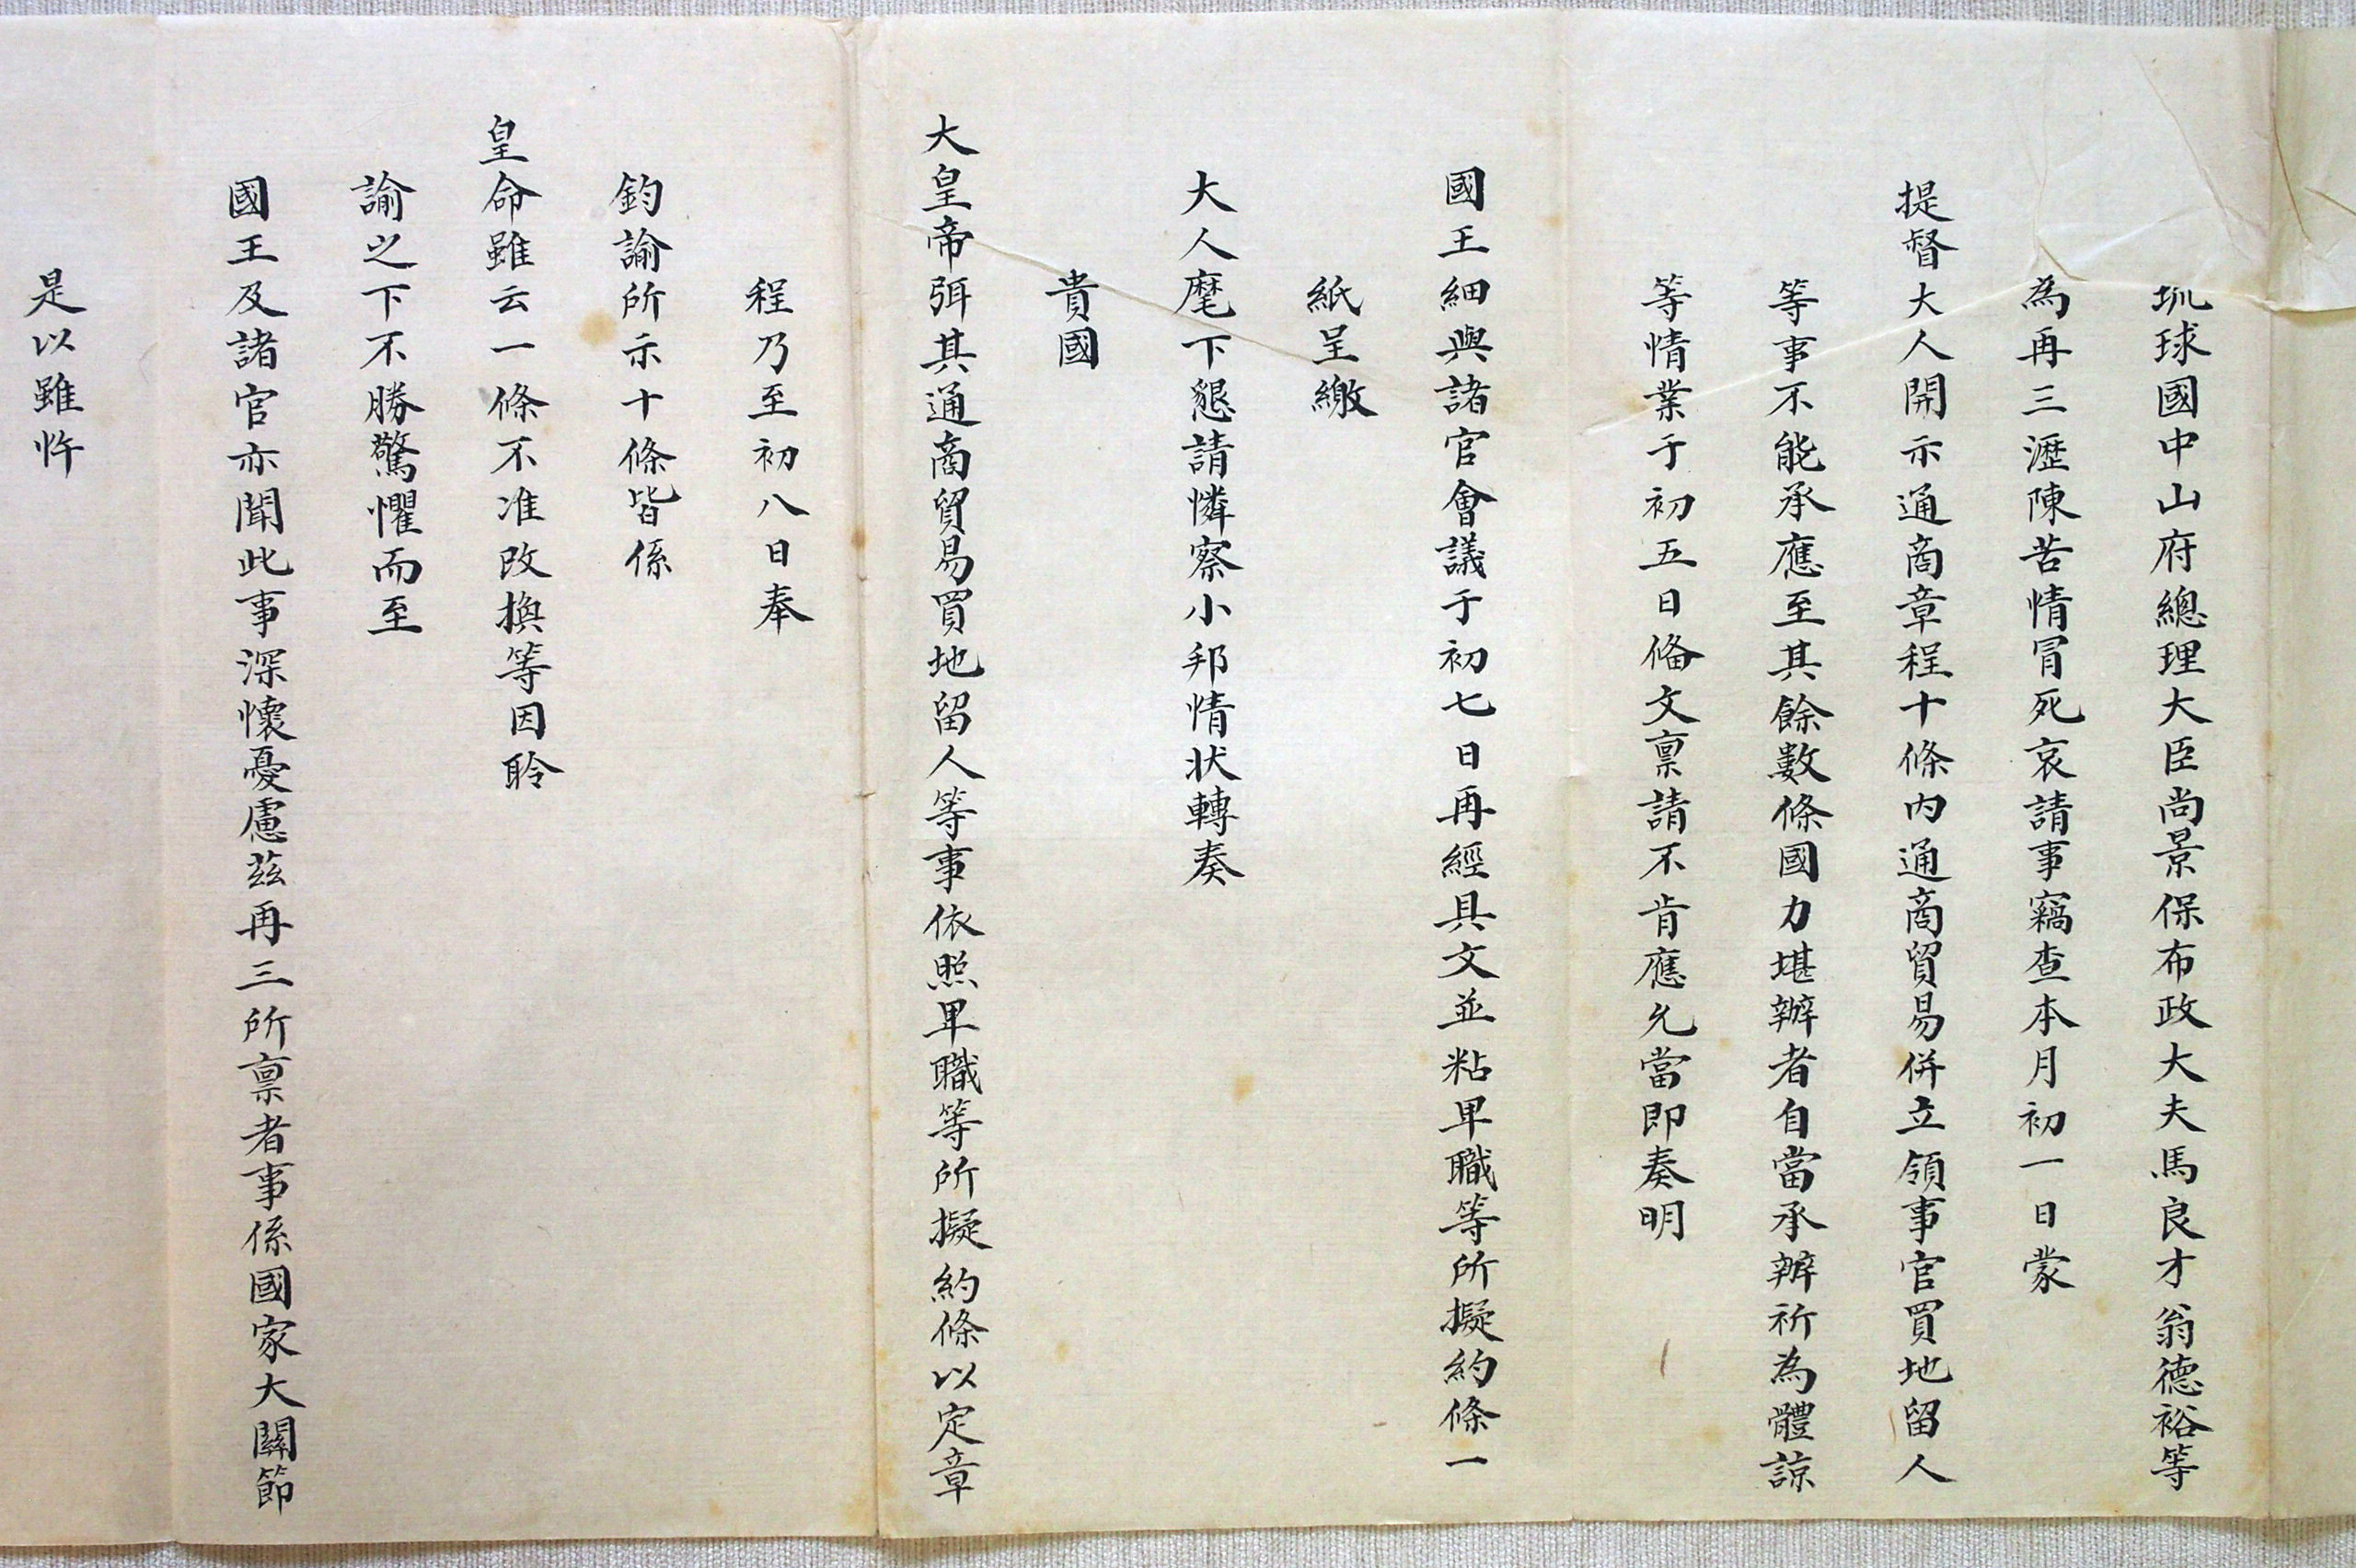 琉球國中山府總理大臣尚景保布政大夫馬良才翁德裕等
為再三瀝陳苦情冒死哀請事竊查本月初一日蒙
提督大人開示通商章程十條内通商貿易併立領事官買地留人
等事不能承應至其餘數條國力堪辦者自當承辦祈為體諒
等情業于初五日偹文禀請不肯應允當即奏明
國王細與諸官會議于初七日再經具文並粘卑職等所擬約條一
紙呈繳
大人麾下懇請憐察小邦情状轉奏
貴國
大皇帝弭其通商貿易買地留人等事依照卑職等所擬約條以定章
程乃至初八日奉
鈞諭所示十條皆係
皇命雖云一條不准改換等因聆
諭之下不勝驚懼而至
國王及諸官亦聞此事深懷憂慮茲再三所禀者事係國家大關節
是以雖忤